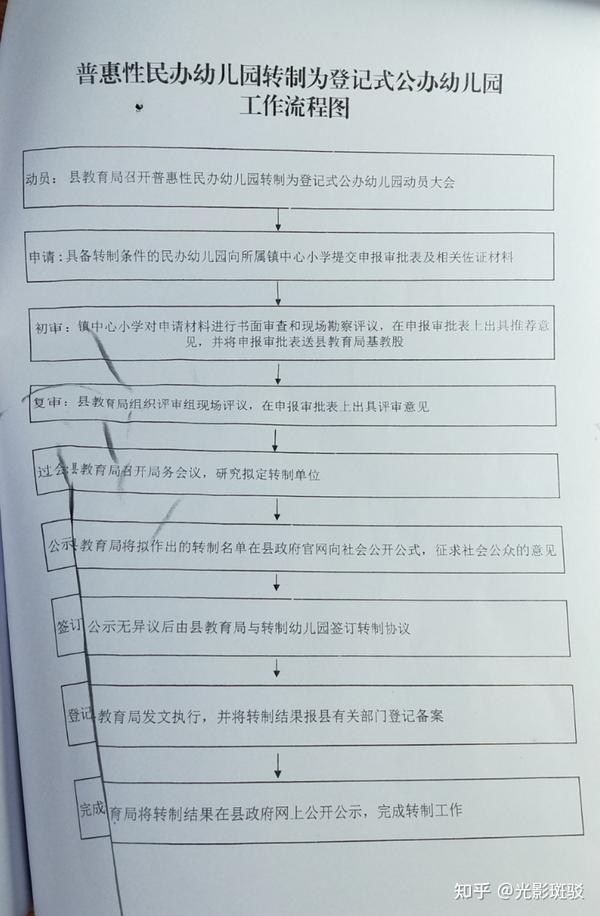 普惠性民办幼儿园转制为登记式公办幼儿园
工作流程图
动员：县教育局召开普惠性民办幼儿园转制为登记式公办幼儿园动员大会
申请：具备转制条件的民办幼儿园向所属镇中心小学提交申报审批表及相关佐证材料
初审：镇中心小学对申请材料进行书面审查和现场勘察评议，在申报审批表上出具推荐意
见，并将申报审批表送县教育局基教股
复审：县教育局组织评审组现场评议，在申报审批表上出具评审意见
过会 县教育局召开局务会议，研究拟定转制单位
公示 县教育局将拟作出的转制名单在县政府官网向社会公开公式，征求社会公众的意见
签订 公示无异议后由县教育局与转制幼儿园签订转制协议
登记 教育局发文执行，并将转制结果报县有关部门登记备案
完成 育局将转制结果在县政府网上公开公示，完成转制工作
知乎 @光影斑驳